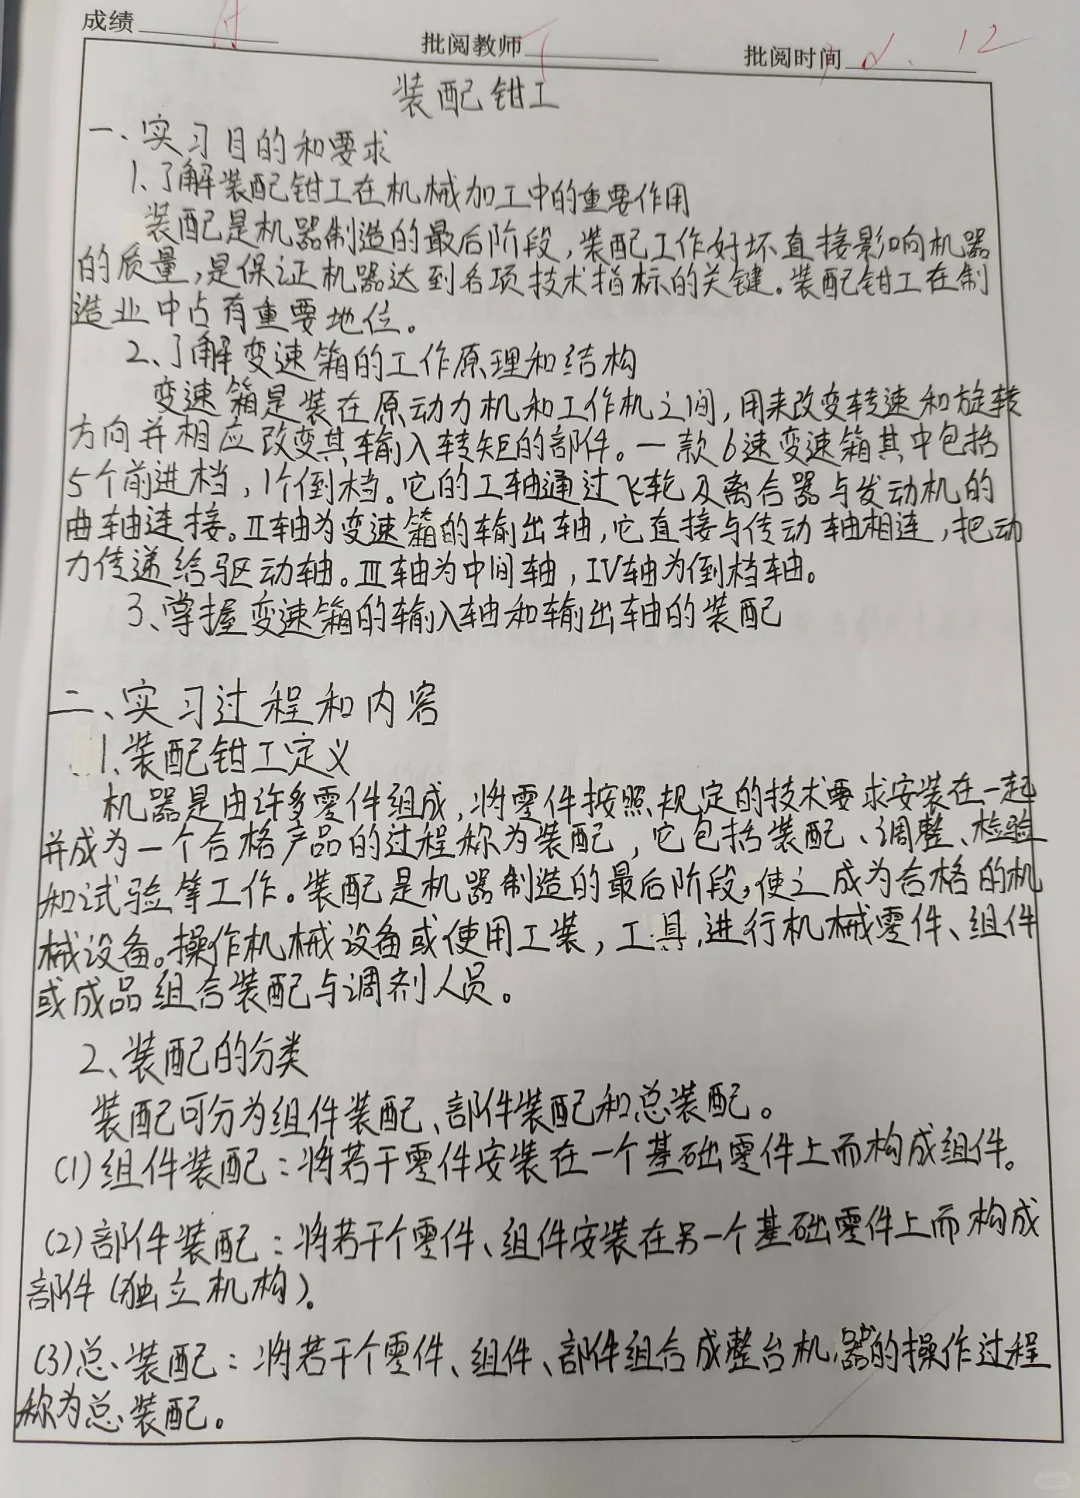 成绩 A 批阅教师 批阅时间 12
装配钳工
一、实习目的和要求
1、了解装配钳工在机械加工中的重要作用
装配是机器制造的最后阶段,装配工作好坏直接影响机器
的质量,是保证机器达到各项技术指标的关键。装配钳工在制
造业中占有重要地位。
2、了解变速箱的工作原理和结构
变速箱是装在原动力机和工作机之间,用来改变转速和旋转
方向并相应改变其输入转矩的部件。一款6速变速箱其中包括
5个前进档,1个倒档。它的I轴通过飞轮及离合器与发动机的
曲轴连接。II轴为变速箱的输出轴,它直接与传动轴相连,把动
力传递给驱动轴。III轴为中间轴,IV轴为倒档轴。
3、掌握变速箱的输入轴和输出轴的装配
二、实习过程和内容
1、装配钳工定义
机器是由许多零件组成,将零件按照规定的技术要求安装在一起
并成为一个合格产品的过程称为装配,它包括装配、调整、检验
和试验等工作。装配是机器制造的最后阶段,使之成为合格的机
械设备。操作机械设备或使用工装,工具,进行机械零件、组件
或成品组合装配与调剂人员。
2、装配的分类
装配可分为组件装配、部件装配和总装配。
(1)组件装配:将若干零件安装在一个基础零件上而构成组件。
(2)部件装配:将若干个零件、组件安装在另一个基础零件上而构成
部件(独立机构)。
(3)总装配:将若干个零件、组件、部件组合成整台机器的操作过程
称为总装配。